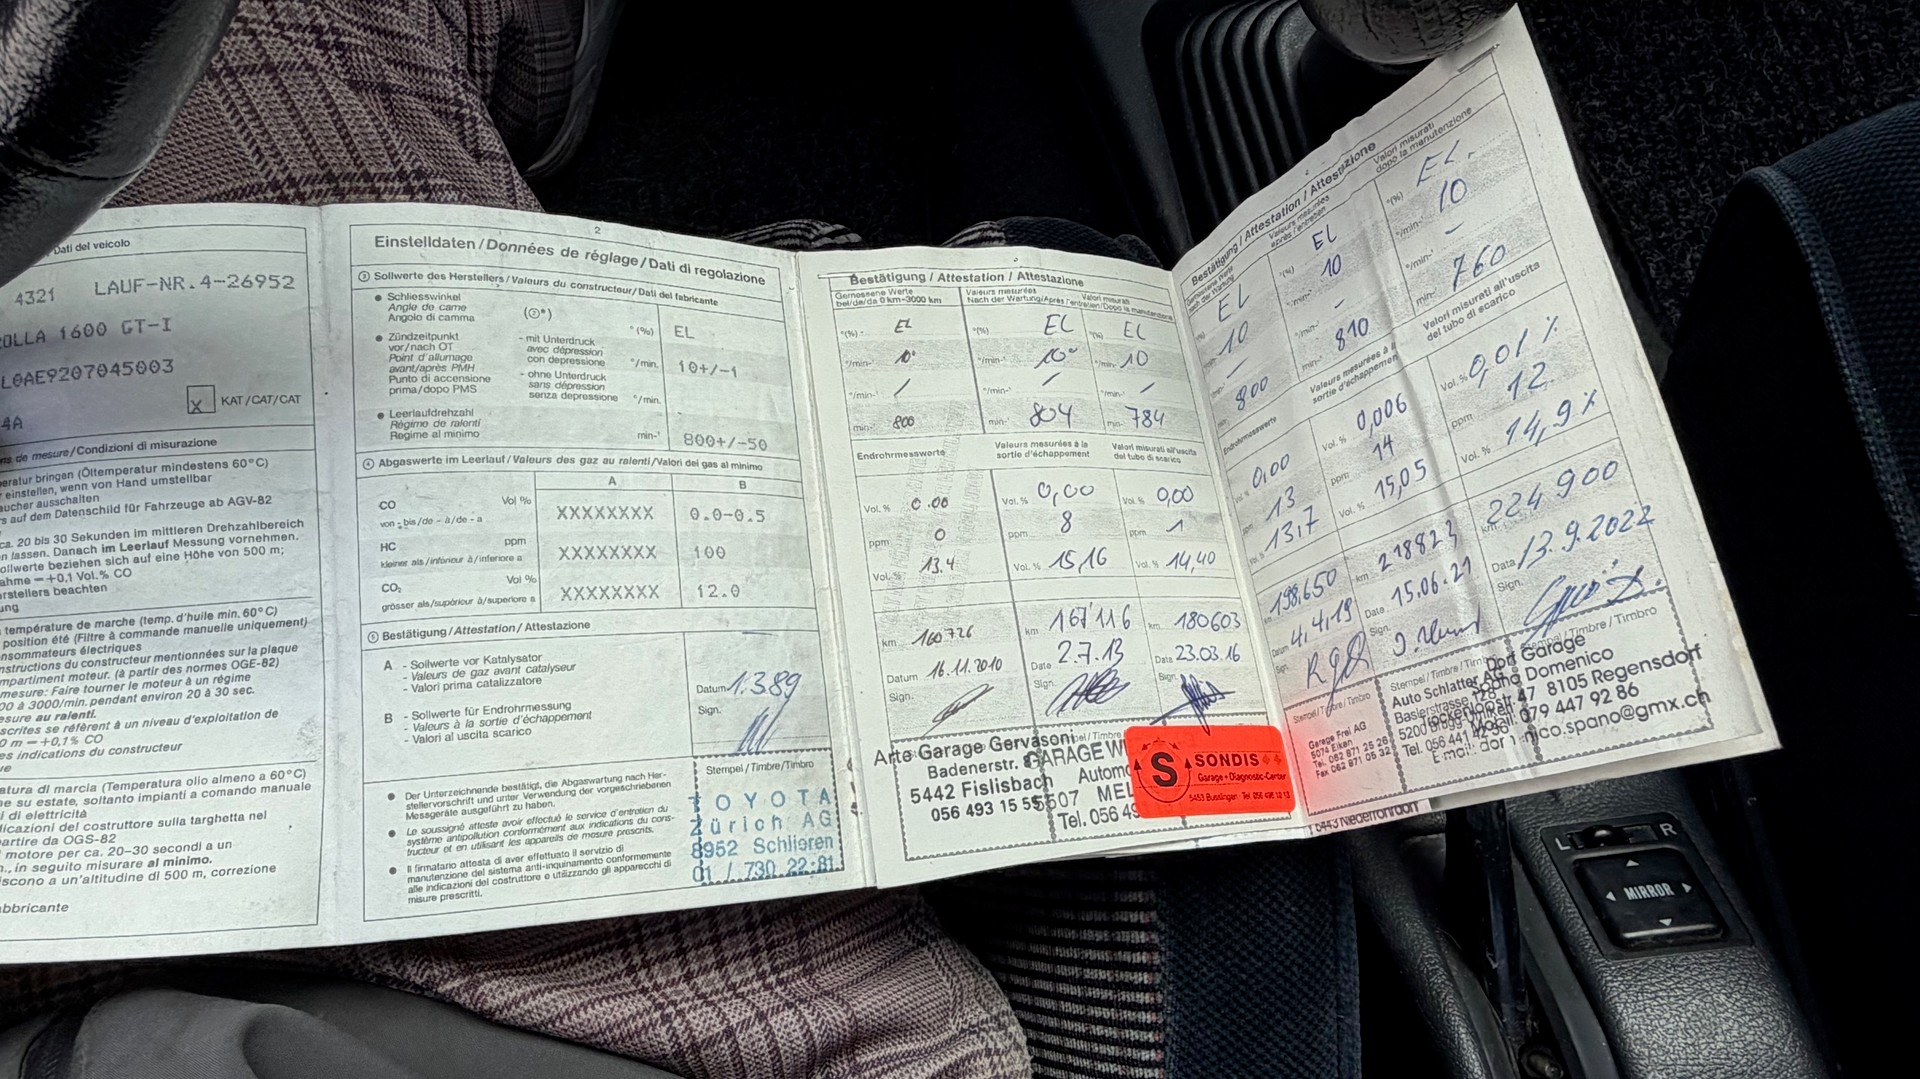 Dati del veicolo
4321 LAUF-NR.4-26952
OLLA 1600 GT-I
L0AE9207045003
X KAT/CAT/CAT
4A
de mesure/Condizioni di misurazione
eratur bringen (Öltemperatur mindestens 60°C)
einstellen, wenn von Hand umstellbar
aucher ausschalten
s auf dem Datenschild für Fahrzeuge ab AGV-82
ca. 20 bis 30 Sekunden im mittleren Drehzahlbereich
en lassen. Danach im Leerlauf Messung vornehmen.
ollwerte beziehen sich auf eine Höhe von 500 m;
ahme = +0,1 Vol.% CO
erstellers beachten
ung
température de marche (temp. d'huile min. 60°C)
position été (Filtre à commande manuelle uniquement)
nsommateurs électriques
nstructions du constructeur mentionnées sur la plaque
mpartiment moteur. (à partir des normes OGE-82)
mesure: Faire tourner le moteur à un régime
00 à 3000/min. pendant environ 20 à 30 sec.
esure au ralenti.
scrites se réfèrent à un niveau d'exploitation de
0 m = +0,1% CO
es indications du constructeur
atura di marcia (Temperatura olio almeno a 60°C)
e su estate, soltanto impianti a comando manuale
i di elettricità
licazioni del costruttore sulla targhetta nel
partire da OGS-82
motore per ca. 20–30 secondi a un
n., in seguito misurare al minimo.
iscono a un'altitudine di 500 m, correzione
abbricante
2
Einstelldaten/Données de réglage/Dati di regolazione
③ Sollwerte des Herstellers/Valeurs du constructeur/Dati del fabricante
● Schliesswinkel
Angle de came
Angolo di camma
(③*) °(%) EL
● Zündzeitpunkt
vor/nach OT
Point d'allumage
avant/après PMH
Punto di accensione
prima/dopo PMS
- mit Unterdruck
avec dépression
con depressione
°/min. 10+/-1
- ohne Unterdruck
sans dépression
senza depressione °/min.
● Leerlaufdrehzahl
Régime de ralenti
Regime al minimo
min-¹ 800+/-50
④ Abgaswerte im Leerlauf/Valeurs des gaz au ralenti/Valori dei gas al minimo
A B
CO Vol % XXXXXXXX 0.0-0.5
von - bis/de - à/de - a
HC ppm XXXXXXXX 100
kleiner als/inférieur à/inferiore a
CO₂ Vol % XXXXXXXX 12.0
grösser als/supérieur à/superiore a
⑤ Bestätigung/Attestation/Attestazione
A - Sollwerte vor Katalysator
- Valeurs de gaz avant catalyseur
- Valori prima catalizzatore
B - Sollwerte für Endrohrmessung
- Valeurs à la sortie d'échappement
- Valori al uscita scarico
Datum 1.3.89
Sign.
● Der Unterzeichnende bestätigt, die Abgaswartung nach Her-
stellervorschrift und unter Verwendung der vorgeschriebenen
Messgeräte ausgeführt zu haben.
● Le soussigné atteste avoir effectué le service d'entretien du
système antipollution conformément aux indications du cons-
tructeur et en utilisant les appareils de mesure prescrits.
● Il firmatario attesta di aver effettuato il servizio di
manutenzione del sistema anti-inquinamento conformemente
alle indicazioni del costruttore e utilizzando gli apparecchi di
misure prescritti.
Stempel/Timbre/Timbro
TOYOTA
Zürich AG
8952 Schlieren
01 / 730 22 81
Bestätigung / Attestation / Attestazione
Gemessene Werte
bei/de/da 0 km-3000 km
Valeurs mesurées Valori misurati
Nach der Wartung/Après l'entretien/Dopo la manutenzione
°(%) EL °(%) EL °(%) EL
°/min-¹ 10° °/min-¹ 10° °/min-¹ 10
°/min-¹ / °/min-¹ / °/min-¹ /
min-¹ 800 min-¹ 804 min-¹ 784
Endrohrmesswerte
Valeurs mesurées à la
sortie d'échappement
Valori misurati all'uscita
del tubo di scarico
Vol. % 0.00 Vol. % 0,00 Vol. % 0,00
ppm 0 ppm 8 ppm 1
Vol. % 13.4 Vol. % 15,16 Vol. % 14,40
km 160726 km 167'116 km 180603
Datum 16.11.2010 Date 2.7.13 Data 23.03.16
Sign. Sign. Sign.
Arte Garage Gervasoni
Badenerstr.
5442 Fislisbach
056 493 15 55
GARAGE W
Automo
5507 MEL
Tel. 056 49
S SONDIS
Garage + Diagnostic-Center
5453 Busslingen
Bestätigung / Attestation / Attestazione
Gemessene Werte
nach der Wartung
Valeurs mesurées
après l'entretien
Valori misurati
dopo la manutenzione
EL °(%) EL °(%) EL.
10 °/min-¹ 10 °/min-¹ 10
- °/min-¹ - °/min-¹ -
800 min-¹ 810 min-¹ 760
Endrohrmesswerte
Valeurs mesurées à la
sortie d'échappement
Valori misurati all'uscita
del tubo di scarico
Vol. % 0,00 Vol. % 0,006 Vol. % 0,01 %
ppm 13 ppm 14 ppm 12.
Vol. % 13,7 Vol. % 15,05 Vol. % 14,9 %
km 198.650 km 218823 km 224.900
Datum 4.4.19 Date 15.06.21 Data 13.9.2022
Sign. Sign. Sign.
Stempel/Timbre/Timbro
Garage Frei AG
5074 Eiken
Tel. 062 871 25 26
Fax 062 871 05 32
Auto Schlatter AG
Baslerstrasse 128
5200 Brugg
Tel. 056 441
Dorf Garage
Domenico
47 8105 Regensdorf
Mobil: 079 447 92 86
E-mail: domenico.spano@gmx.ch
5443 Niederrohrdorf
L R
MIRROR